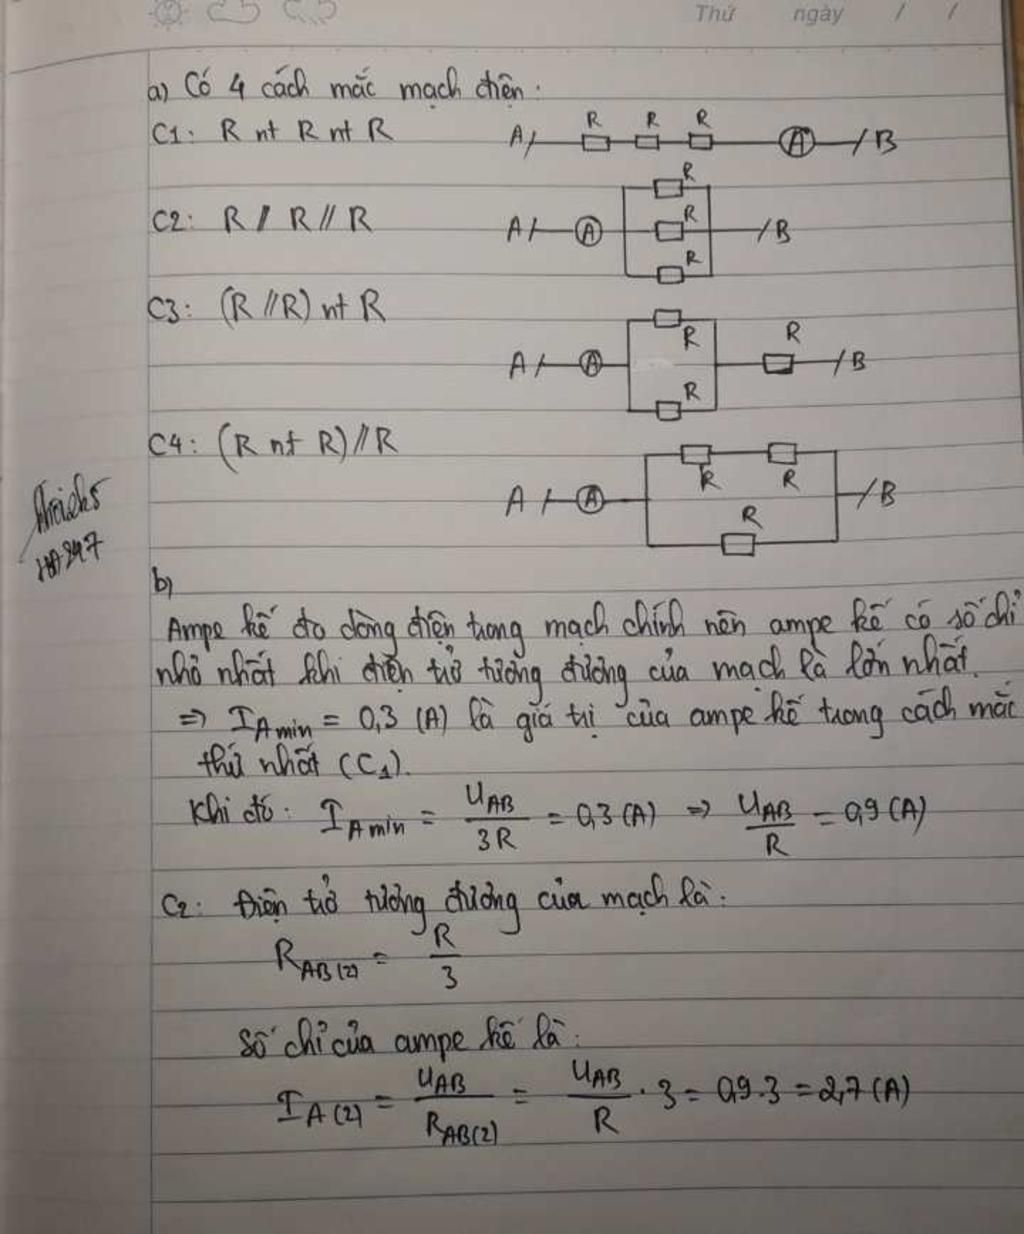 Thứ ngày / /
a) Có 4 cách mắc mạch điện.
C1: R nt R nt R
A R R R A B
C2: R // R // R
A A R R R B
C3: (R // R) nt R
A A R R R B
C4: (R nt R) // R
A A R R R B
b)
Ampe kế đo dòng điện trong mạch chính nên ampe kế có số chỉ
nhỏ nhất khi điện trở tương đương của mạch là lớn nhất.
=> I_{A min} = 0,3 (A) là giá trị của ampe kế trong cách mắc
thứ nhất (C_1).
Khi đó: I_{A min} = U_{AB}/3R = 0,3 (A) => U_{AB}/R = 0,9 (A)
C_2: Điện trở tương đương của mạch là:
R_{AB(2)} = R/3
Số chỉ của ampe kế là:
I_{A(2)} = U_{AB}/R_{AB(2)} = U_{AB}/R . 3 = 0,9.3 = 2,7 (A)